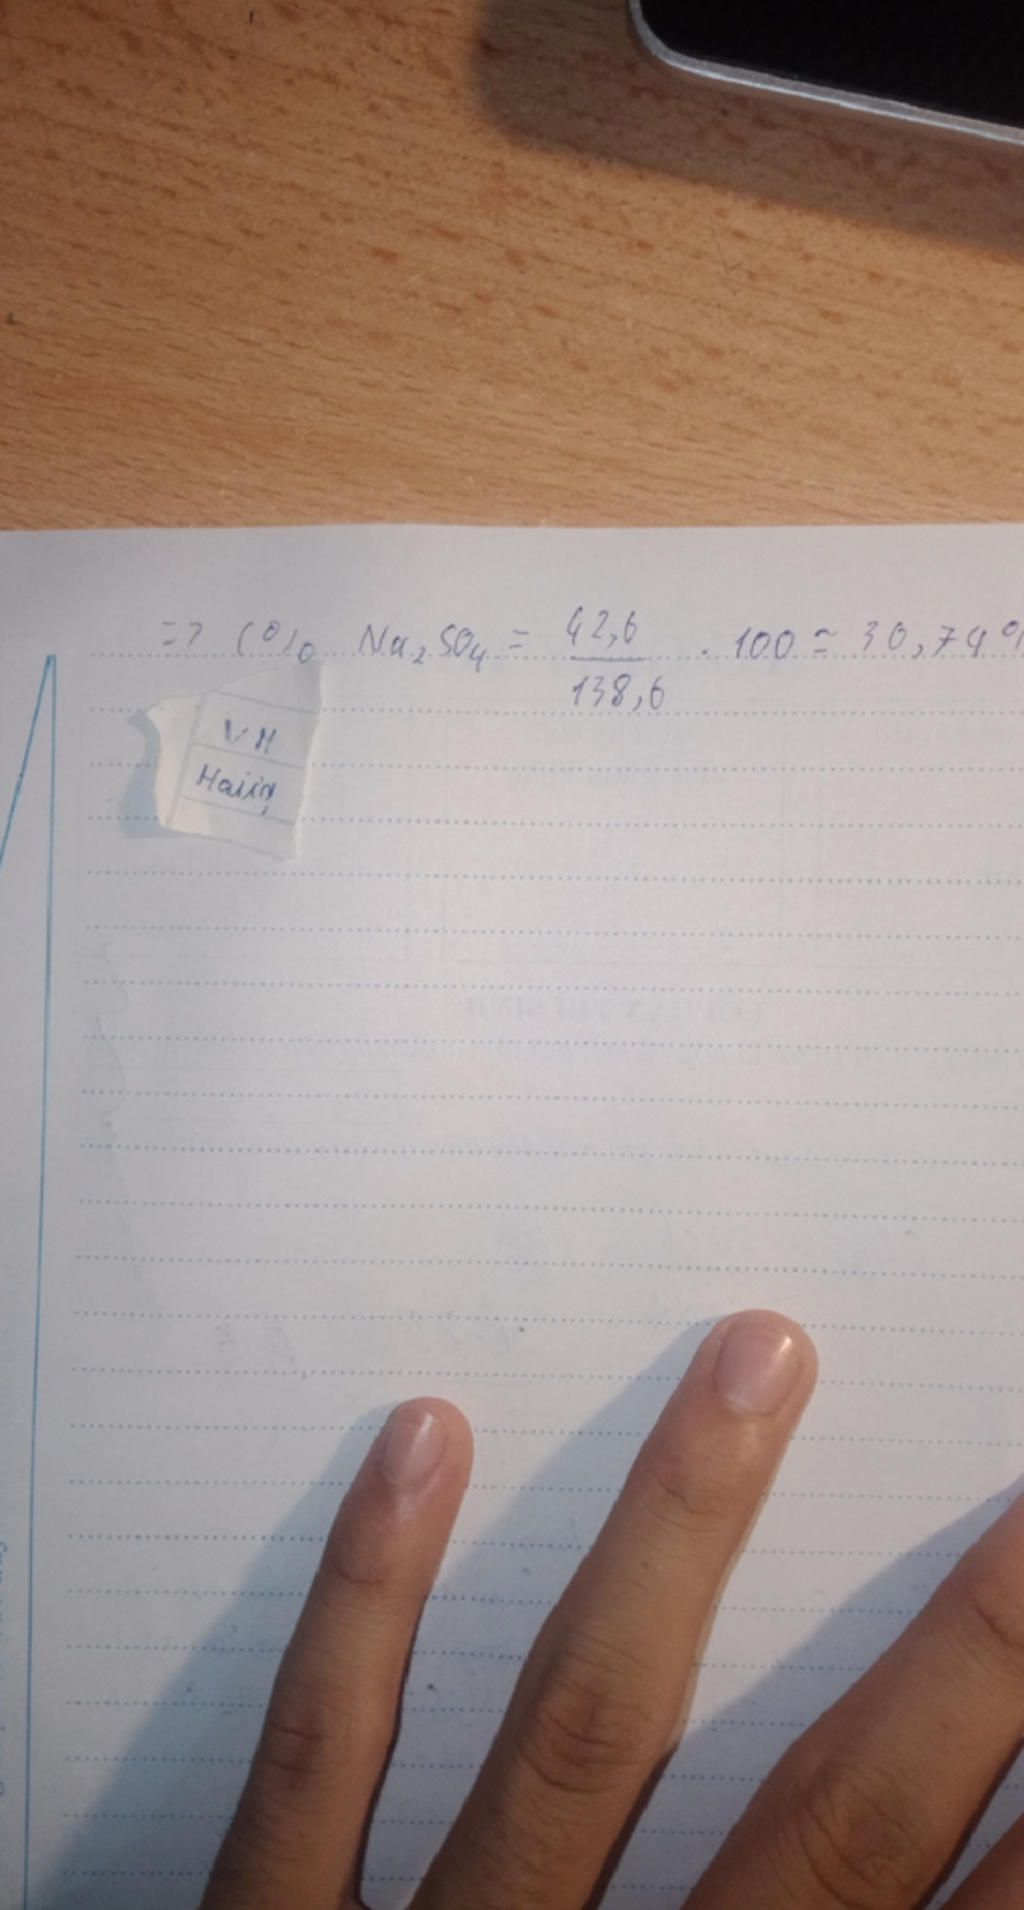 => C% Na₂SO₄ = 42,6 / 138,6 . 100 ≈ 30,74%
VH